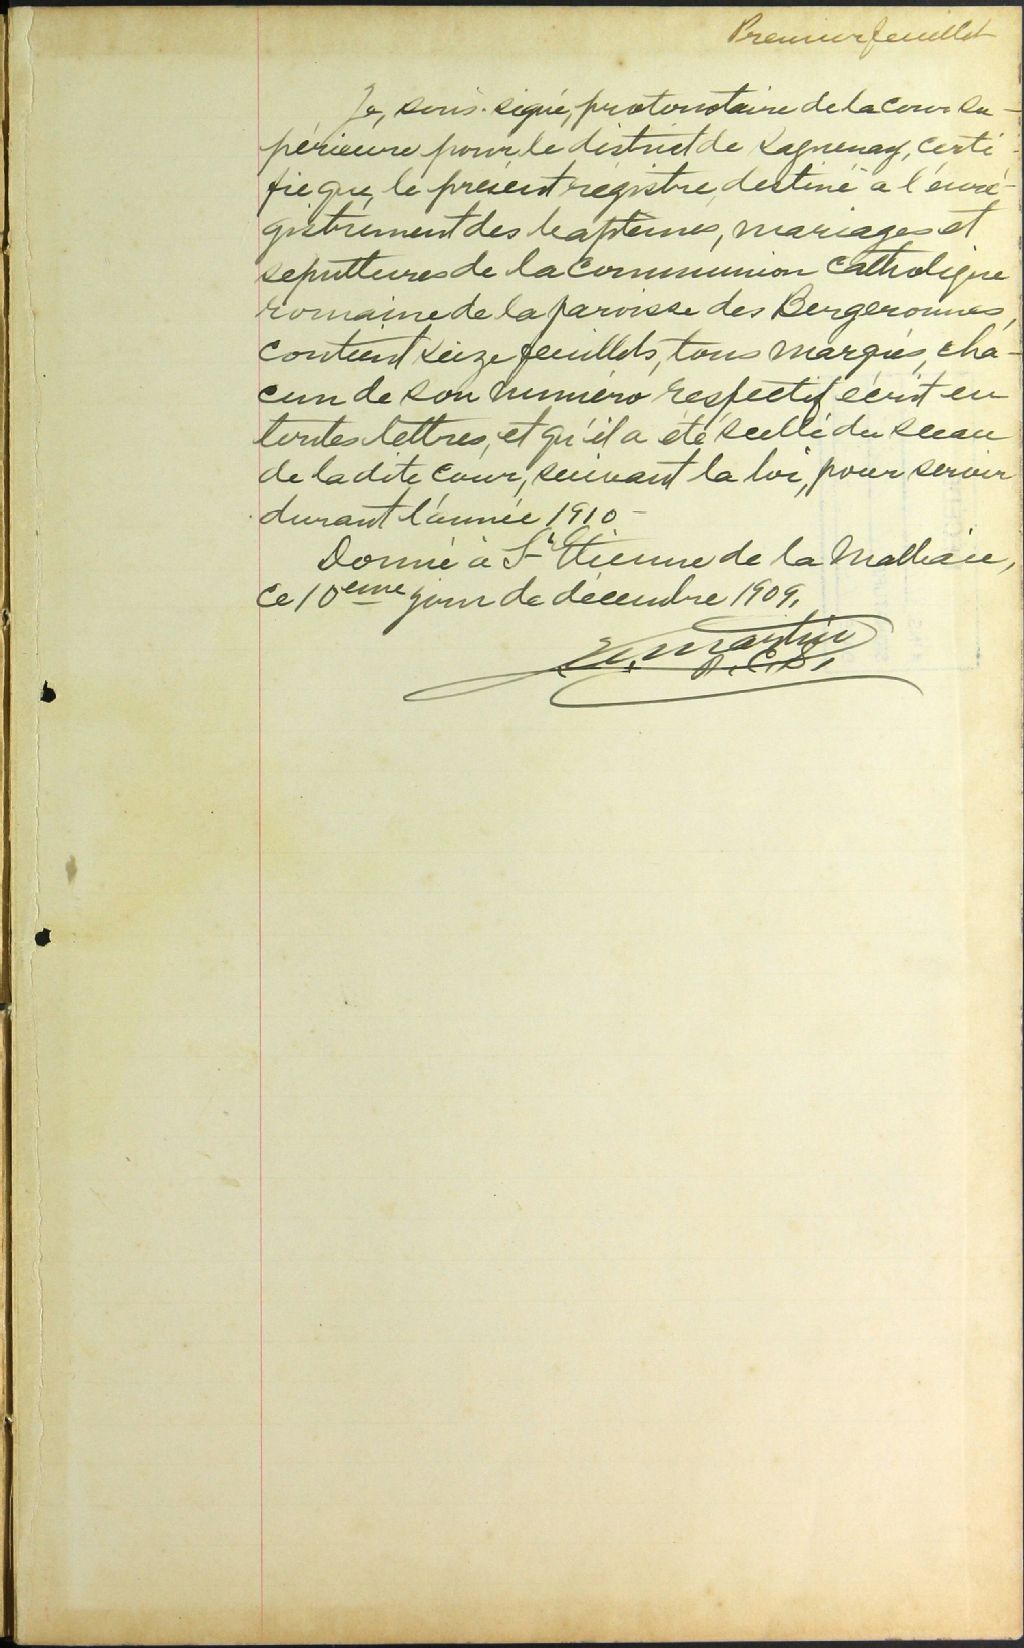 Premier feuillet
Je, sous-signé, protonotaire de la cour su-
périeure pour le district de Saguenay, certi-
fie que, le présent régistre, destiné à l'enré-
gistrement des baptêmes, mariages et
sépultures de la communion catholique
romaine de la paroisse des Bergeronnes,
contient seize feuillets, tous marqués, cha-
cun de son numéro respectif écrit en
toutes lettres, et qu'il a été scellé du sceau
de la dite cour, suivant la loi, pour servir
durant l'année 1910 -
Donné à St Etienne de la Malbaie,
ce 10ème jour de décembre 1909.
Martin
P.C.S.